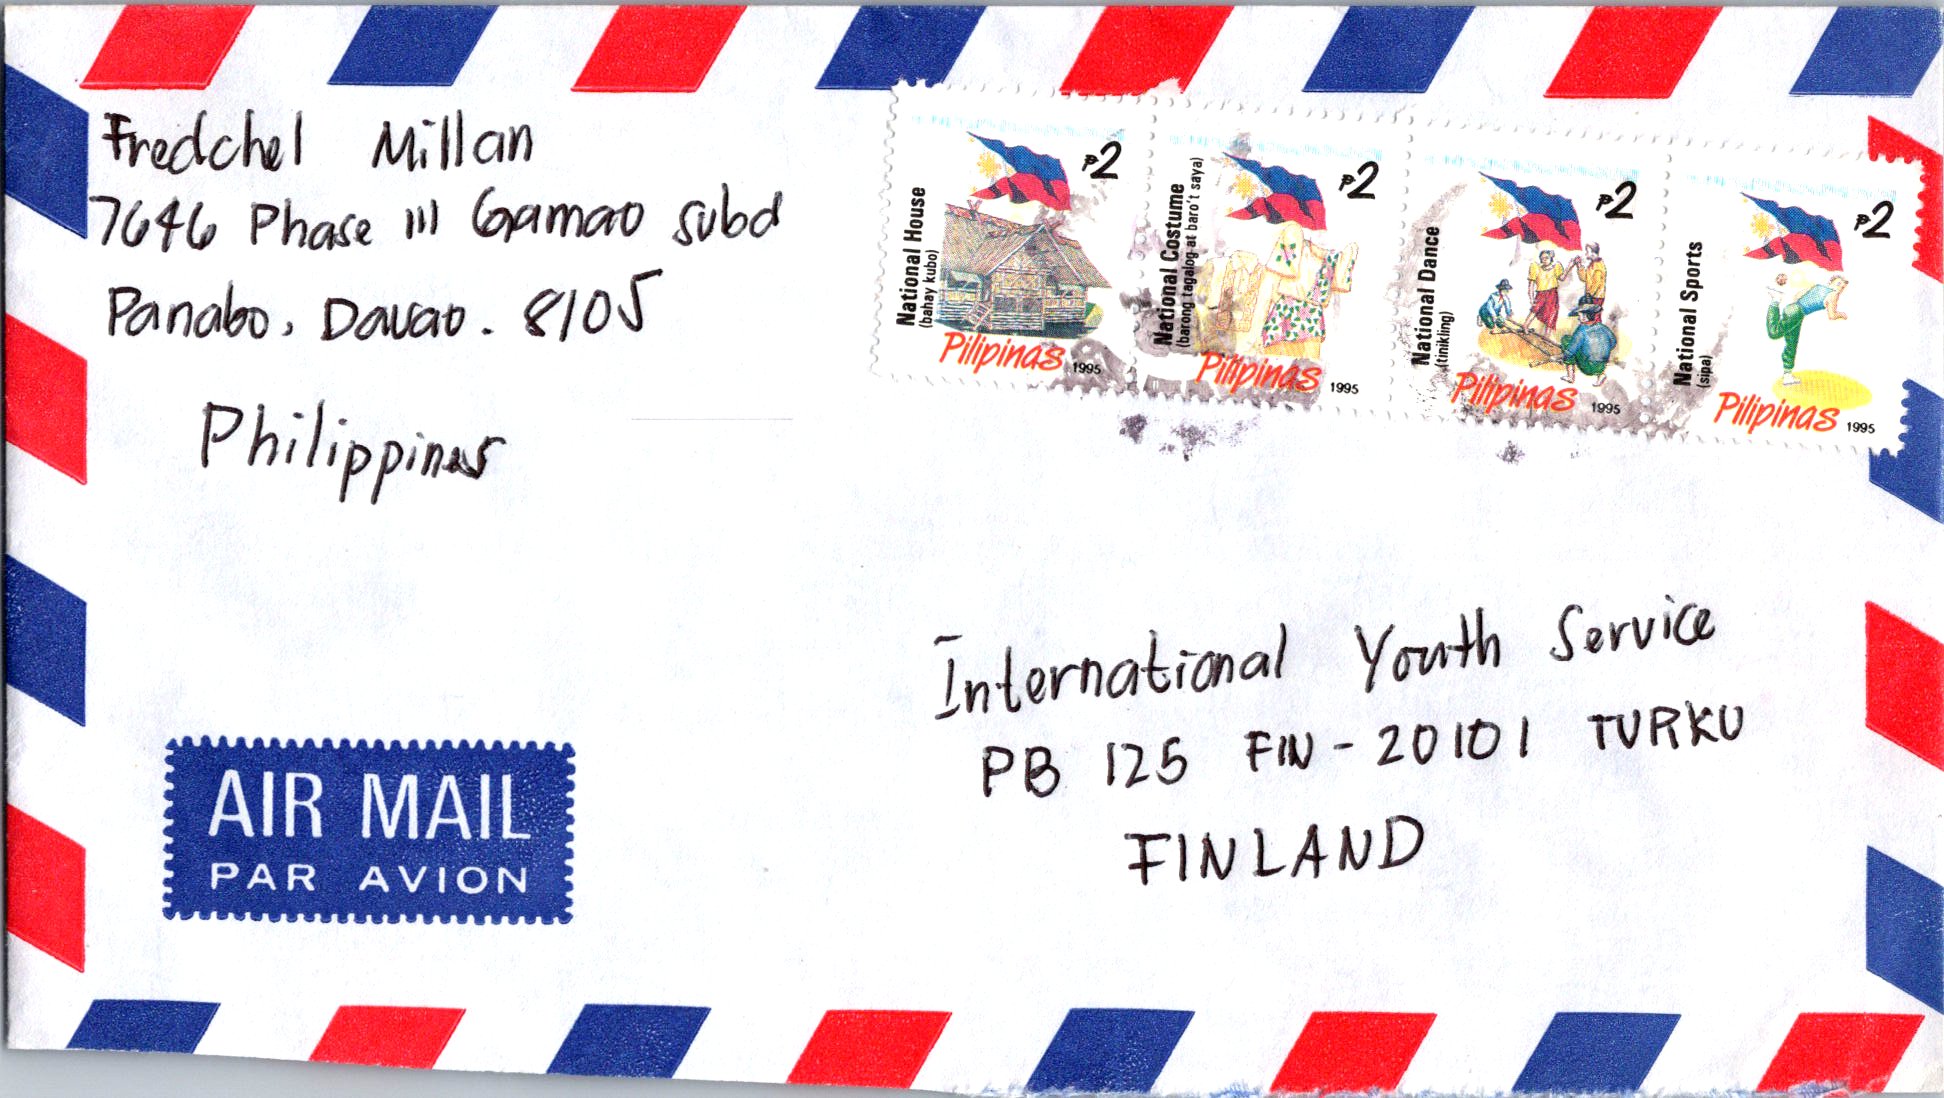 Fredchel Millan
7646 Phase III Gamao Subd
Panabo, Davao. 8105
Philippines
National House
(bahay kubo)
₱2
Pilipinas 1995
National Costume
(barong tagalog at baro't saya)
₱2
Pilipinas 1995
National Dance
(tinikling)
₱2
Pilipinas 1995
National Sports
(sipa)
₱2
Pilipinas 1995
International Youth Service
PB 125 FIN-20101 TURKU
FINLAND
AIR MAIL
PAR AVION